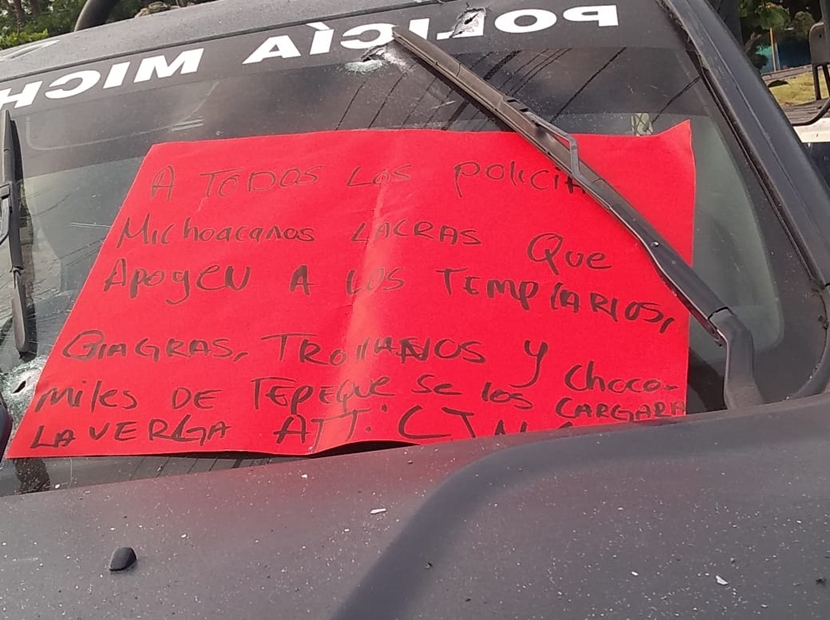 POLICÍA MICH
A TODOS LOS POLICIA
MICHOACANOS LACRAS QUE
APOYEN A LOS TEMPLARIOS,
GIAGRAS, TROIIANOS Y CHOCO-
MILES DE TEPEQUE SE LOS CARGARA
LA VERGA ATT: CJN